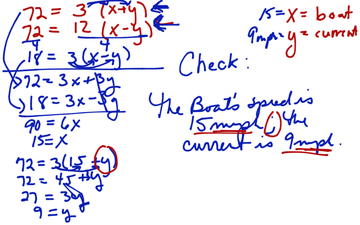 72 = 3 (x+y)
72 = 12 (x-y)
4 4
18 = 3(x-y)
72 = 3x+3y
18 = 3x-3y
90 = 6x
15 = x
72 = 3(15+y)
72 = 45+3y
27 = 3y
9 = y
15 = x = boat
9mph = y = current
Check:
The Boat's speed is
15 mph ; the
current is 9mph.